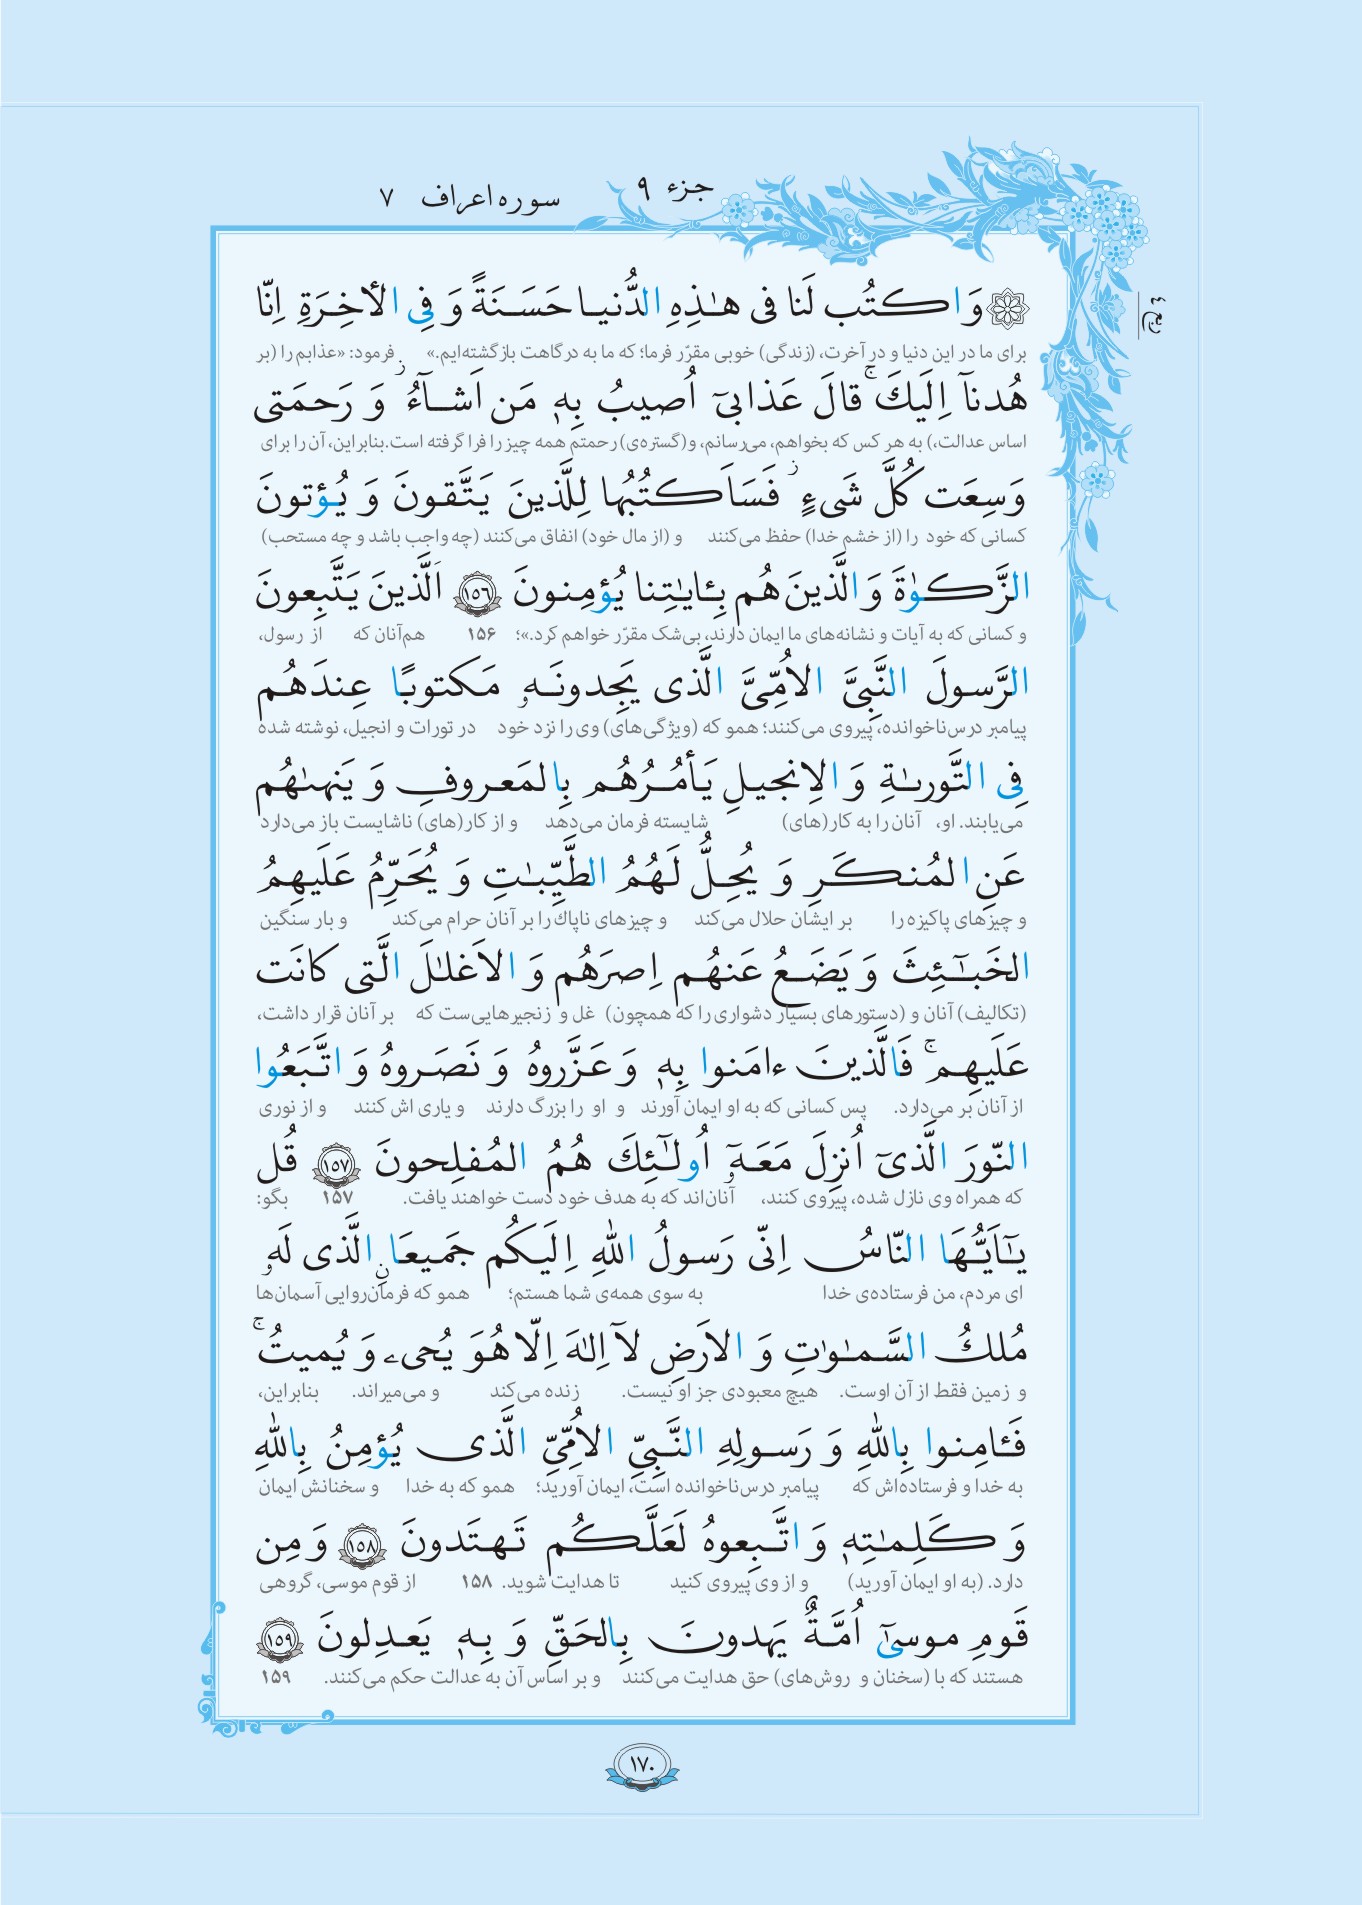 جزء ۹
سوره اعراف ۷
ربع ٤
وَاكتُب لَنا فى هـٰذِهِ الدُّنيا حَسَنَةً وَ فِى الأخِرَةِ اِنّا
برای ما در این دنیا و در آخرت، (زندگی) خوبی مقرّر فرما؛ که ما به درگاهت بازگشته‌ایم.» فرمود: «عذابم را (بر
هُدنآ اِلَيكَ ۚ قالَ عَذابىٓ اُصيبُ بِهٖ مَن اَشآءُ ۖ وَ رَحمَتى
اساس عدالت،) به هر کس که بخواهم، می‌رسانم، و(گستره‌ی) رحمتم همه چیز را فرا گرفته است.بنابراین، آن را برای
وَسِعَت كُلَّ شَىءٍ ۚ فَسَاَكتُبُها لِلَّذينَ يَتَّقونَ وَ يُؤتونَ
کسانی که خود را (از خشم خدا) حفظ می‌کنند و (از مال خود) انفاق می‌کنند (چه واجب باشد و چه مستحب)
الزَّكوٰةَ وَ الَّذينَ هُم بِـٔايٰتِنا يُؤمِنونَ ١٥٦ اَلَّذينَ يَتَّبِعونَ
و کسانی که به آیات و نشانه‌های ما ایمان دارند، بی‌شک مقرّر خواهم کرد.»؛ ۱۵۶ هم‌آنان که از رسول،
الرَّسولَ النَّبِىَّ الاُمِّىَّ الَّذى يَجِدونَهٗ مَكتوبًا عِندَهُم
پیامبر درس‌ناخوانده، پیروی می‌کنند؛ همو که (ویژگی‌های) وی را نزد خود در تورات و انجیل، نوشته شده
فِى التَّورىٰةِ وَ الاِنجيلِ يَأمُرُهُم بِالمَعروفِ وَ يَنهىٰهُم
می‌یابند. او، آنان را به کار(های) شایسته فرمان می‌دهد و از کار(های) ناشایست باز می‌دارد
عَنِ المُنكَرِ وَ يُحِلُّ لَهُمُ الطَّيِّبٰتِ وَ يُحَرِّمُ عَلَيهِمُ
و چیزهای پاکیزه را بر ایشان حلال می‌کند و چیزهای ناپاک را بر آنان حرام می‌کند و بار سنگین
الخَبٰٓئِثَ وَ يَضَعُ عَنهُم اِصرَهُم وَ الاَغلٰلَ الَّتى كانَت
(تکالیف) آنان و (دستورهای بسیار دشواری را که همچون) غل و زنجیرهایی‌ست که بر آنان قرار داشت،
عَلَيهِم ۚ فَالَّذينَ ءامَنوا بِهٖ وَ عَزَّروهُ وَ نَصَروهُ وَ اتَّبَعُوا
از آنان بر می‌دارد. پس کسانی که به او ایمان آورند و او را بزرگ دارند و یاری اش کنند و از نوری
النّورَ الَّذىٓ اُنزِلَ مَعَهٗٓ اُولٰٓئِكَ هُمُ المُفلِحونَ ١٥٧ قُل
که همراه وی نازل شده، پیروی کنند، آنان‌اند که به هدف خود دست خواهند یافت. ۱۵۷ بگو:
يٰٓاَيُّهَا النّاسُ اِنّى رَسولُ اللهِ اِلَيكُم جَميعًا الَّذى لَهٗ
ای مردم، من فرستاده‌ی خدا به سوی همه‌ی شما هستم؛ همو که فرمان‌روایی آسمان‌ها
مُلكُ السَّمٰوٰتِ وَ الاَرضِ لآ اِلٰهَ اِلّا هُوَ يُحىۦ وَ يُميتُ ۚ
و زمین فقط از آن اوست. هیچ معبودی جز او نیست. زنده می‌کند و می‌میراند. بنابراین،
فَـٔامِنوا بِاللهِ وَ رَسولِهِ النَّبِىِّ الاُمِّىِّ الَّذى يُؤمِنُ بِاللهِ
به خدا و فرستاده‌اش که پیامبر درس‌ناخوانده است، ایمان آورید؛ همو که به خدا و سخنانش ایمان
وَ كَلِمٰتِهٖ وَ اتَّبِعوهُ لَعَلَّكُم تَهتَدونَ ١٥٨ وَ مِن
دارد. (به او ایمان آورید) و از وی پیروی کنید تا هدایت شوید. ۱۵۸ از قوم موسی، گروهی
قَومِ موسىٰٓ اُمَّةٌ يَهدونَ بِالحَقِّ وَ بِهٖ يَعدِلونَ ١٥٩
هستند که با (سخنان و روش‌های) حق هدایت می‌کنند و بر اساس آن به عدالت حکم می‌کنند. ۱۵۹
۱۷۰